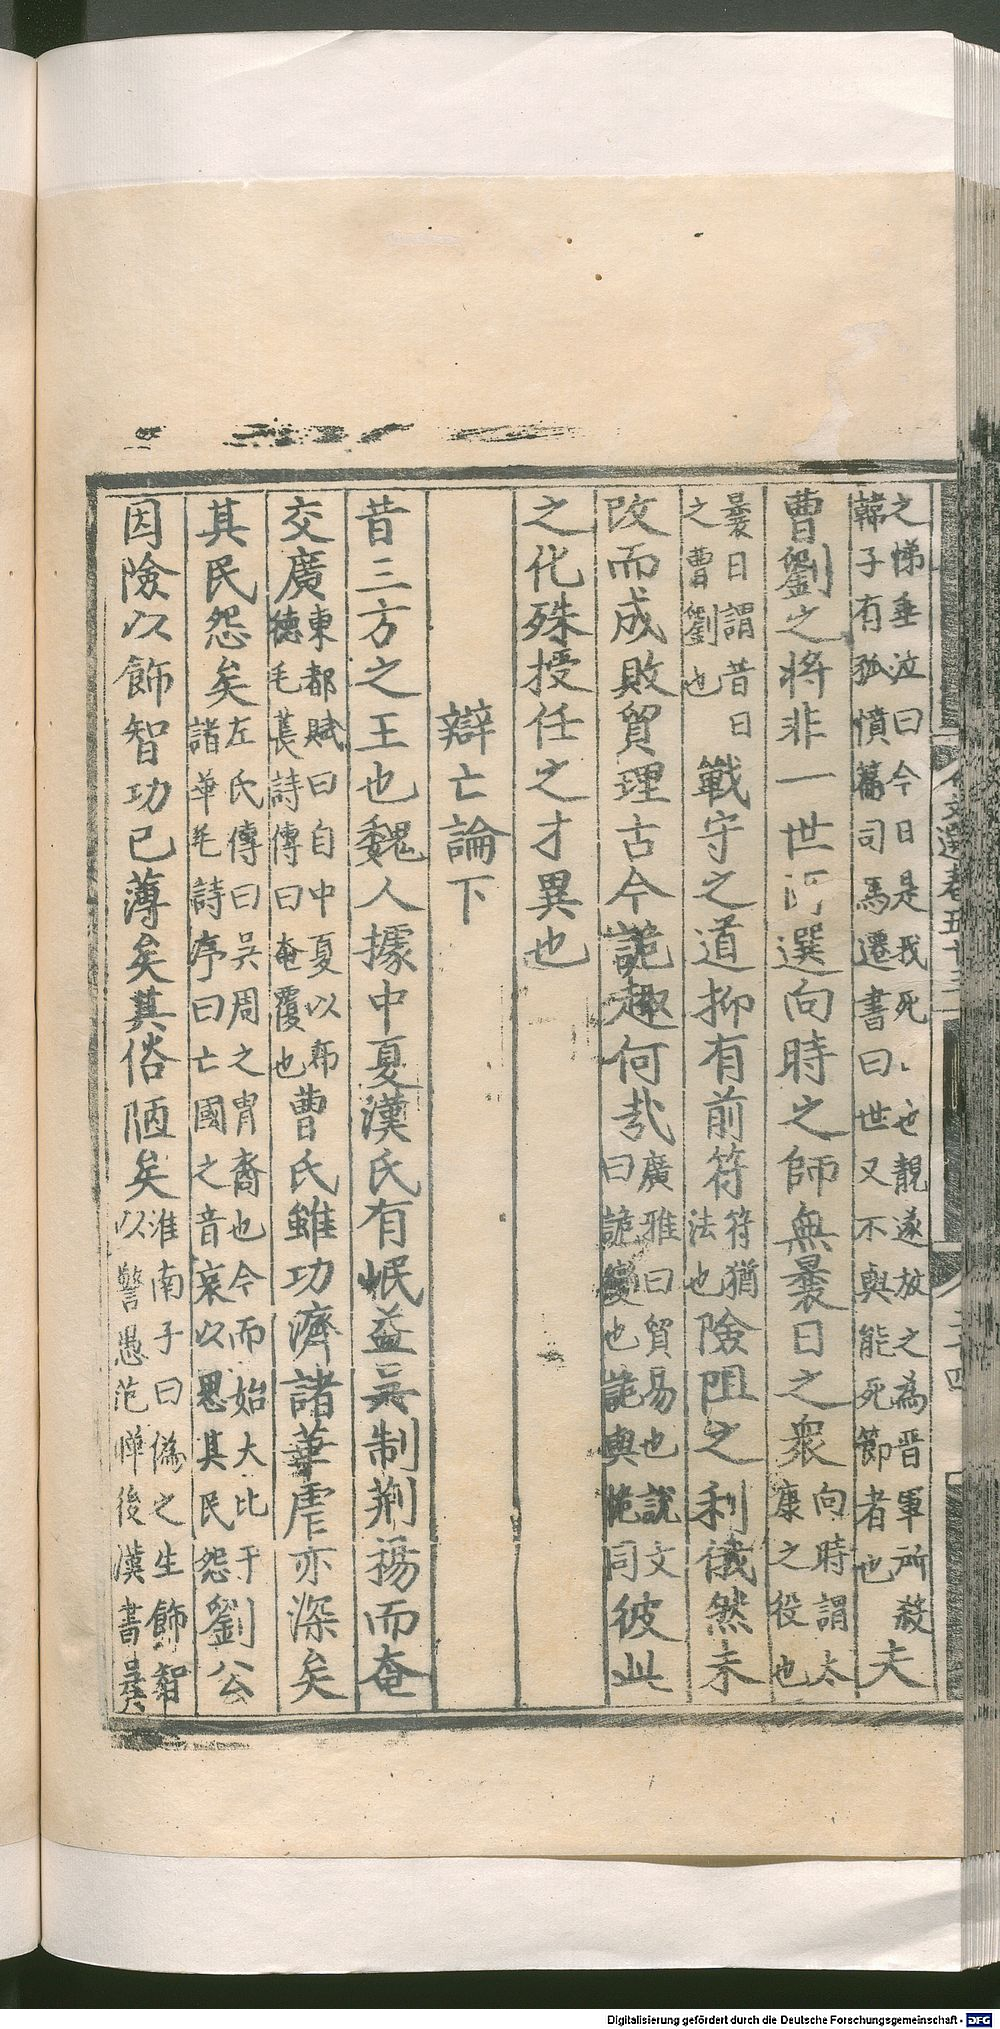 之悌垂泣曰今日是我死、也靚遂放之為晋軍所殺
韓子有孤憤篇司馬遷書曰世又不與能死節者也夫
曹劉之將非一世所選向時之師無曩日之衆向時謂太
康之役也
曩日謂昔日
之曹劉也戰守之道抑有前符符猶
法也險阻之利俄然未
改而成敗貿理古今詭趣何㢤廣雅曰貿易也說文
曰詭變也詭與恑同彼此
之化殊授任之才異也
辯亡論下
昔三方之王也魏人據中夏漢氏有岷益吳制荆揚而奄
交廣東都賦曰自中夏以布
德毛萇詩傳曰奄覆也曹氏雖功濟諸華虐亦深矣
其民怨矣左氏傳曰吳周之胄裔也今而始大比于
諸華毛詩序曰亡國之音哀以思其民怨劉公
因險以飾智功已薄矣其俗陋矣淮南子曰偽之生飾智
以警愚范曄後漢書
文選卷五十三
二十四
Digitalisierung gefördert durch die Deutsche Forschungsgemeinschaft - DFG